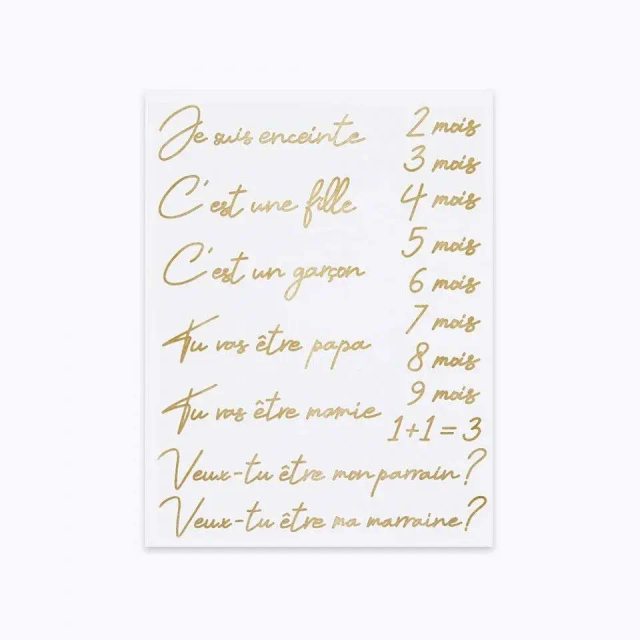 Je suis enceinte
C'est une fille
C'est un garçon
Tu vas être papa
Tu vas être mamie
Veux-tu être mon parrain ?
Veux-tu être ma marraine ?
2 mois
3 mois
4 mois
5 mois
6 mois
7 mois
8 mois
9 mois
1+1 = 3